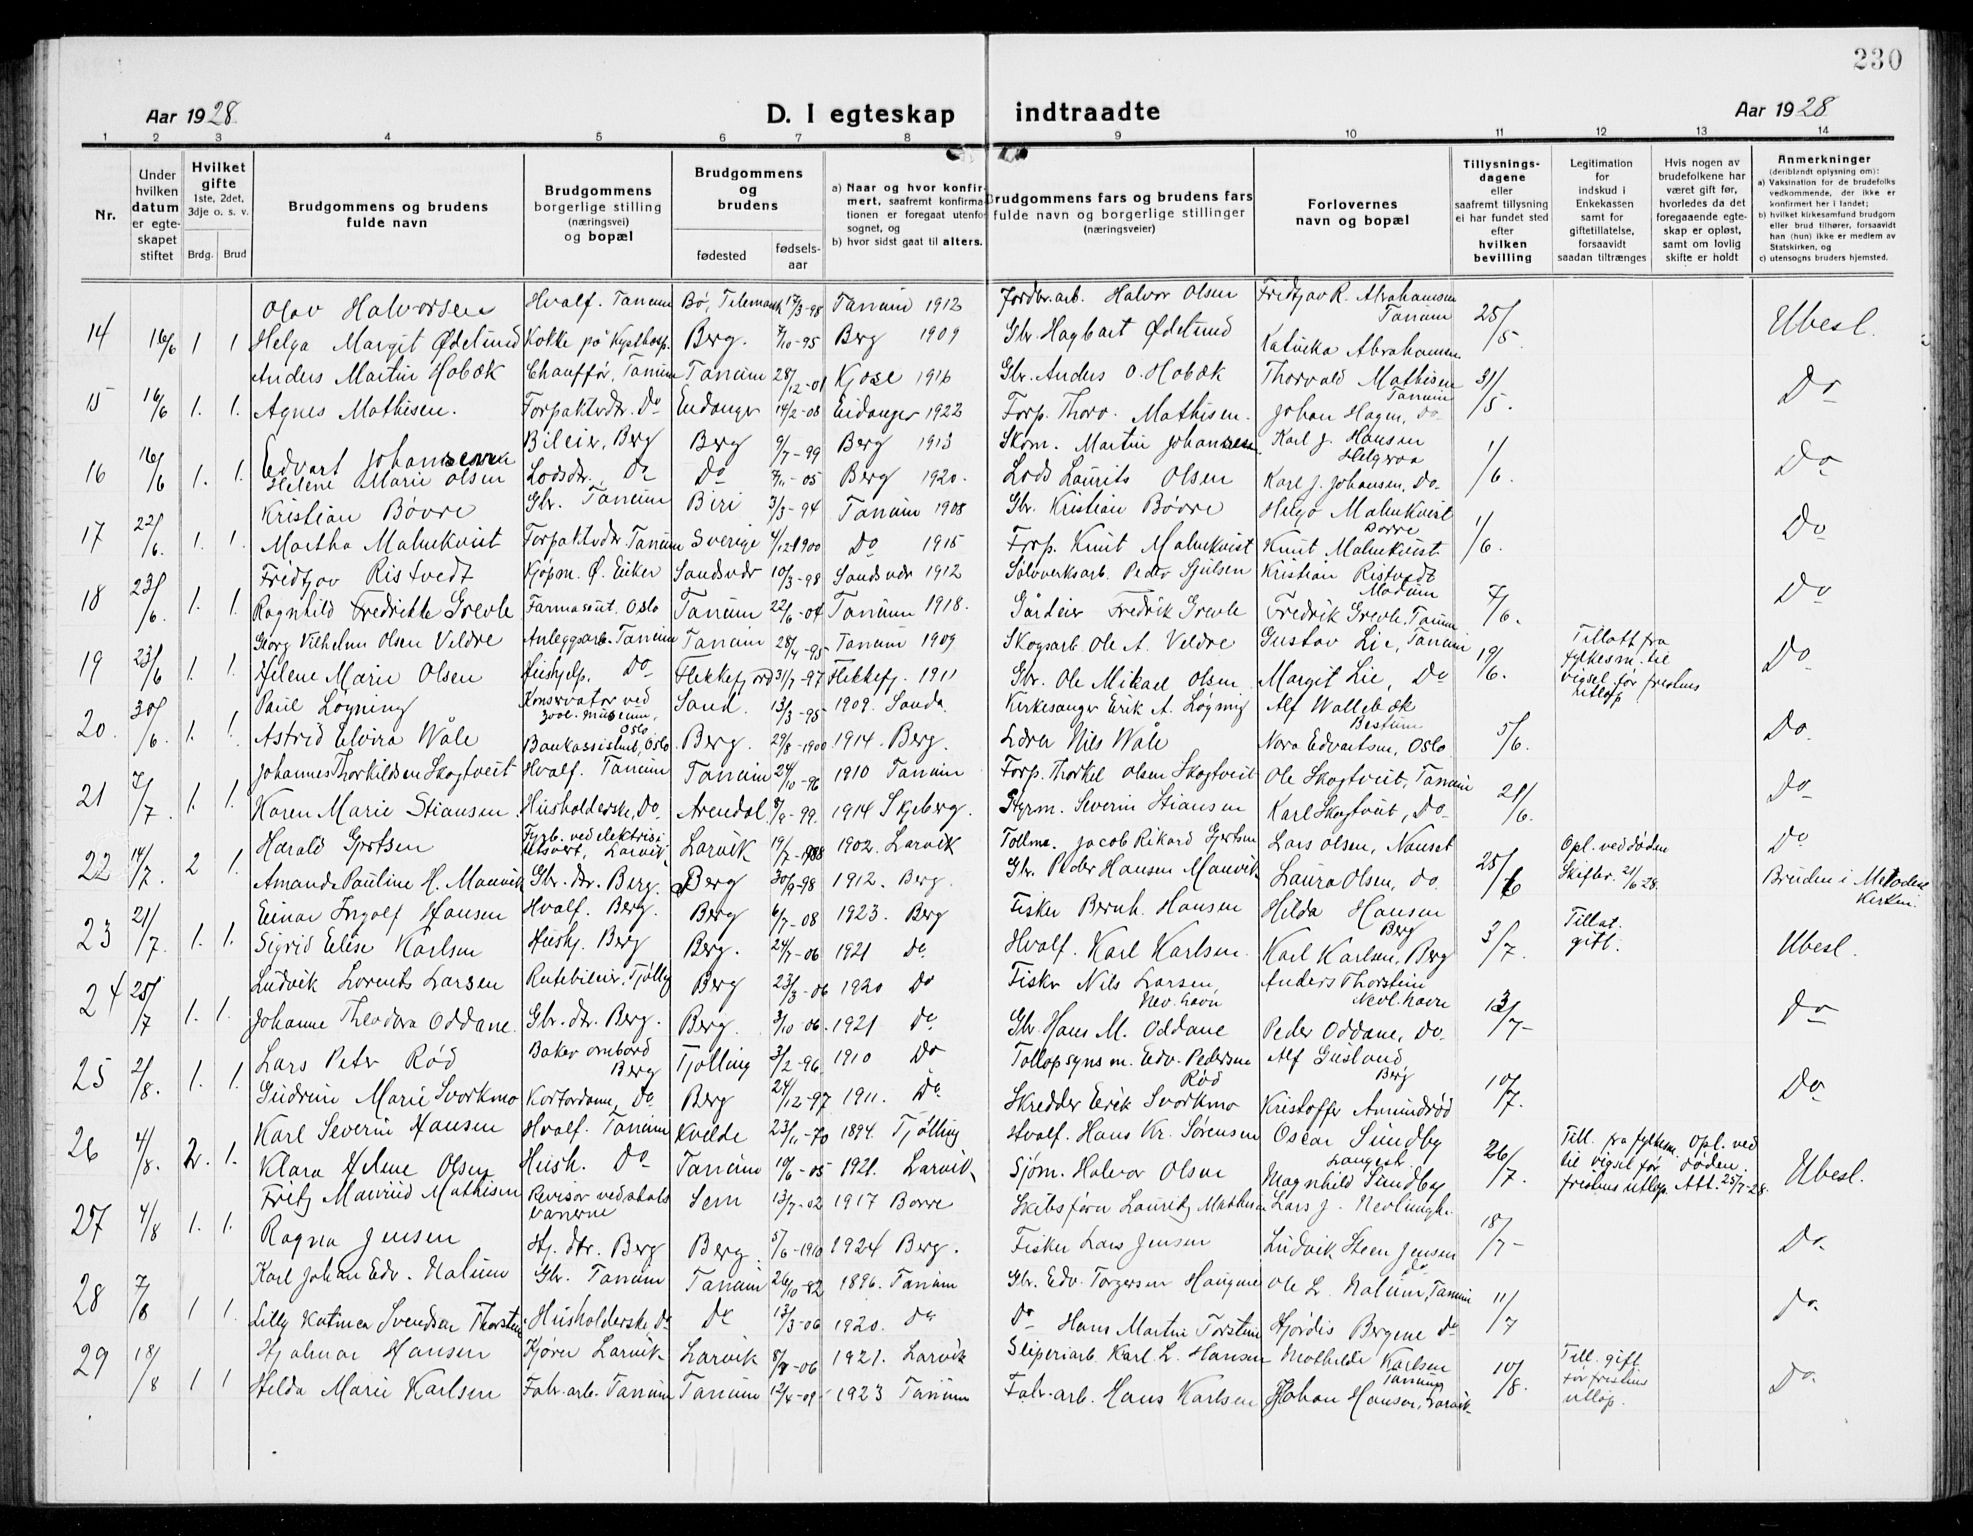 230
Aar 1928
D. I egteskap indtraadte
Aar 1928
1 2 3 4 5 6 7 8 9 10 11 12 13 14
Nr.
Under hvilken datum er egteskapet stiftet
Hvilket gifte 1ste, 2det, 3dje o. s. v.
Brdg. Brud
Brudgommens og brudens fulde navn
Brudgommens borgerlige stilling (næringsvei) og bopæl
Brudgommens og brudens
fødested fødselsaar
a) Naar og hvor konfirmert, saafremt konfirmationen er foregaat utenfor sognet, og
b) hvor sidst gaat til alters.
Brudgommens fars og brudens fars fulde navn og borgerlige stillinger (næringsveier)
Forlovernes navn og bopæl
Tillysningsdagene eller saafremt tillysning ei har fundet sted efter hvilken bevilling
Legitimation for indskud i Enkekassen samt for giftetillatelse, forsaavidt saadan tiltrænges
Hvis nogen av brudefolkene har været gift før, hvorledes da det foregaaende egteskap er opløst, samt om lovlig skifte er holdt
Anmerkninger (deriblandt oplysning om):
a) Vaksination for de brudefolks vedkommende, der ikke er konfirmert her i landet;
b) hvilket kirkesamfund brudgom eller brud tilhører, forsaavidt han (hun) ikke er medlem av Statskirken, og
c) utensogns bruders hjemsted.
14 16/6 1 1 Olav Halvorsen Hvalf. Tanum Bø, Telemark 17/3-98 Tanum 1912 Jordbr.arb. Halvor Olsen Fridtjov R. Abrahamsen Tanum 25/5 Ubesl.
Helga Margit Ødelund Kokke på Kysthosp. Berg. 7/10-95 Berg 1909 Gbr. Hagbart Ødelund Katinka Abrahamsen
15 16/6 1. 1. Anders Martin Hobæk Chauffør, Tanum Tanum 28/12-01 Kjose 1916 Gbr. Anders O. Hobæk Thorvald Mathisen Tanum 31/5. Do
Agnes Mathisen. Forpakterdtr. Do Eidanger 14/2-08 Eidanger 1922 Forp. Thorv. Mathisen. Johan Hagen, Do
16 16/6 1. 1. Edvart Johansen Bileier, Berg Berg 9/7-99 Berg 1913 Skom. Martin Johansen Karl J. Hansen Helgeroa 1/6. Do
Helene Marie Olsen Lodsdtr. Do Do 7/11-05 Berg 1920. Lods Laurits Olsen Karl J. Johansen, Do.
17 22/6. 1. 1. Kristian Bøvre Gbr. Tanum Biri 3/3-94 Tanum 1908 Gbr. Kristian Bøvre Helge Malmkvist Borre 1/6. Do
Martha Malmkvist Forpakterdtr. Tanum Sverige 4/12-1900 Do 1915 Forp. Knut Malmkvist Knut Malmkvist
18 23/6. 1. 1. Fridtjov Ristvedt Kjøpm. Ø. Eiker Sandsvær 10/3-98 Sandsvær 1912 Sølvverksarb. Peder Gjulsen Kristian Ristvedt Modum 7/6. Do
Ragnhild Fredrikke Grevle Farmasøut, Oslo Tanum 22/6-04 Tanum 1918. Gårdeier Fredrik Grevle Fredrik Grevle, Tanum
19 23/6 1. 1. Georg Vilhelm Olsen Veldre Anleggsarb. Tanum Tanum 28/4-95 Tanum 1909 Skogsarb. Ole A. Veldre Gustav Lie, Tanum 19/6. Tillatt fra fylkesm. til vigsel før fristens utløp Do
Helene Marie Olsen Hushjelp, Do Flekkefjord 31/7-97 Flekkefj. 1911 Gbr. Ole Mikael Olsen Margit Lie, Do
20. 30/6. 1. 1. Paul Løyning Konservator ved zool. museum, Oslo Sand. 13/3-95 1909. Sanda. Kirkesanger Erik A. Løyning Alf Wollebæk Bestum 5/6. Do.
Astrid Elvira Wåle Bankassistent, Oslo Berg. 29/8-1900 1914. Berg. Lærer Nils Wåle Nora Edvartsen, Oslo
21 7/7. 1. 1. Johannes Thorkildsen Skogtveit Hvalf. Tanum Tanum 24/10-96 1910 Tanum Forp. Thorkel Olsen Skogtveit Ole Skogtveit, Tanum 21/6. Do
Karen Marie Stiansen. Husholderske, Do. Arendal. 8/9-99. 1914 Skjeberg. Styrm. Severin Stiansen Karl Skogtveit, Do.
22 14/7. 2 1. Harald Gjertsen Fyrb. ved elektrisitetsverk, Larvik Larvik 19/7-1888 1902. Larvik Tollma. Jacob Rikard Gjertsen Lars Olsen, Nanset 25/6 Opl. ved døden Skiftr. 21/6 28. Do
Amanda Pauline H. Manvik Gbr. dtr. Berg. Berg 30/9-98 1912. Berg. Gbr. Peder Hansen Manvik Laura Olsen, Do. Bruden i Metodistkirken.
23 21/7. 1. 1. Einar Ingolf Hansen Hvalf. Berg. Berg 6/7-08 1923. Berg Fisker Bernh. Hansen Hilda Hansen Berg 3/7. Tillat. gift. Ubesl.
Sigrid Elise Karlsen Hushj. Berg Berg. 24/7-06 1921 Do Hvalf. Karl Karlsen. Karl Karlsen, Berg
24 25/7 1. 1. Ludvik Lorents Larsen Rutebileier, Tjølling Berg 23/3-06 1920 Do Fisker Nils Larsen, Nev.havn Anders Thorstein Nevl.havn 13/7- Do
Johanne Theodora Oddane. Gbr. dtr. Berg. Berg. 3/10-06. 1921. Do. Gbr. Hans M. Oddane Peder Oddane, Do.
25 2/8. 1. 1. Lars Peter Rød Baker ombord Berg Tjølling 3/2-96. 1910 Do Tollopsyns m. Edv. Pedersen Rød Alf Gusland Berg 10/7. Do
Gudrun Marie Svorkmo Kontordame, Do Berg 24/12-97 1911. Do. Skredder Erik Svorkmo Kristoffer Amundrød
26 4/8. 2. 1. Karl Severin Hansen Hvalf. Tanum Kvelde 23/11-70 1894. Tjølling Hvalf. Hans Kr. Sørensen Oscar Sundby Langest. 26/7. Till. fra fylkesm. til vigsel før fristens utløp. Opl. ved døden. Att. 25/7-28. Ubesl.
Klara Helene Olsen Hush. Do Tanum 10/6-05 1921. Larvik. Sjøm. Halvor Olsen Magnhild Sundby
27 4/8 1. 1. Fritz Mathisen Revisor ved statsbanerne Sem 13/7-02 1917 Borre Skibsfører Lauritz Mathisen Lars J. Nevlungh. 18/7- Do.
Ragna Jensen Hj. dtr. Berg Berg. 5/6-1910 1924 Berg. Fisker Lars Jensen Ludvik Steen Jensen Do
28 7/8 1 1 Karl Johan Edv. Nalum Gbr. Tanum Tanum 26/10-82 1896. Tanum Gbr. Edv. Torgersen Haugene Ole L. Nalum, Tanum 11/7 Do.
Lilly Katinca Svendsen Thorstein Husholderske Do Do 13/3-06 1920. Do Do Hans Martin Torstein Hjørdis Bergene Do
29 18/8 1 1 Hjalmar Hansen Kjører Larvik Larvik 8/8-06 1921. Larvik Sliperiarb. Karl L. Hansen Mathilde Karlsen Tanum 10/8. Till. gift. før fristens utløp. Do.
Hilda Marie Karlsen Fabr.arb. Tanum Tanum 12/4-09 1923 Tanum Fabr.arb. Hans Karlsen Johan Hansen, Larvik.